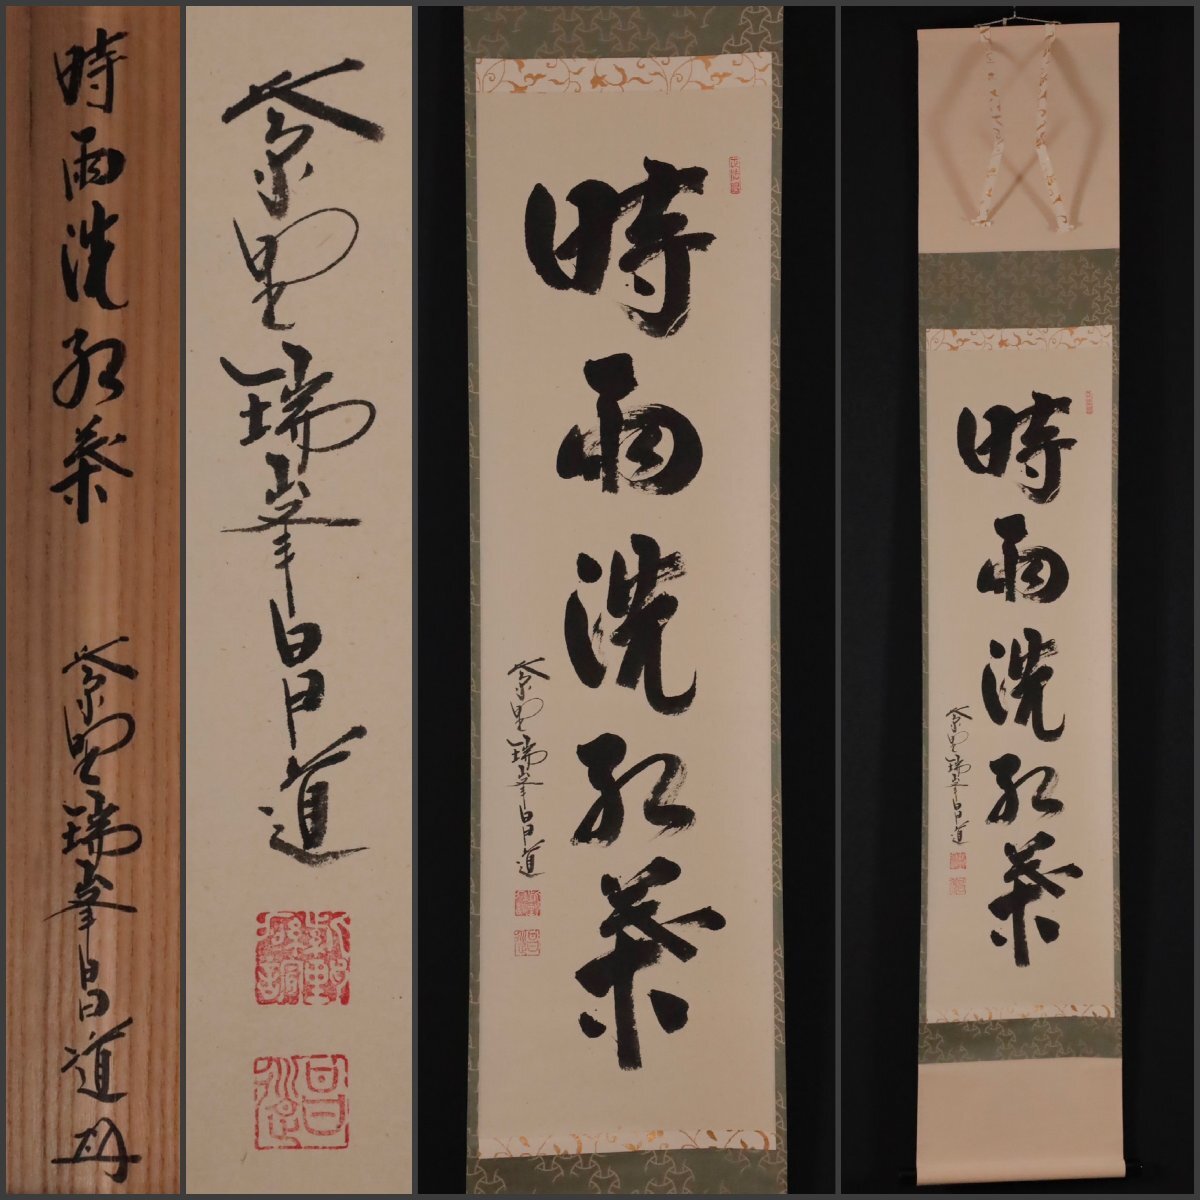 時雨洗紅葉
紫野瑞峯昌道
紫野瑞峯昌道
昌道
時雨洗紅葉
紫野瑞峯昌道
時雨洗紅葉
紫野瑞峯昌道